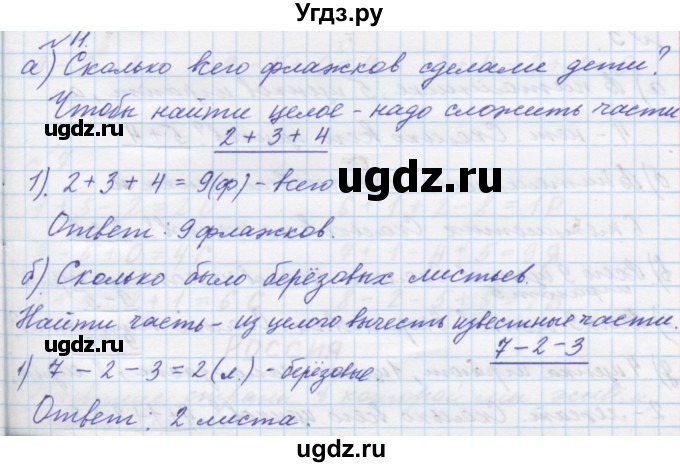 Угдз.ру
№ 11.
а) Сколько всего флажков сделали дети?
Чтобы найти целое - надо сложить части
2 + 3 + 4
ugdz.ru
ugdz.ru
ugdz.ru
1). 2 + 3 + 4 = 9(ф) - всего
Ответ: 9 флажков.
б) Сколько было берёзовых листьев.
Найти часть - из целого вычесть известные части.
7 - 2 - 3
1) 7 - 2 - 3 = 2 (л.) - берёзовые.
Ответ: 2 листа.
ugdz.ru
ugdz.ru